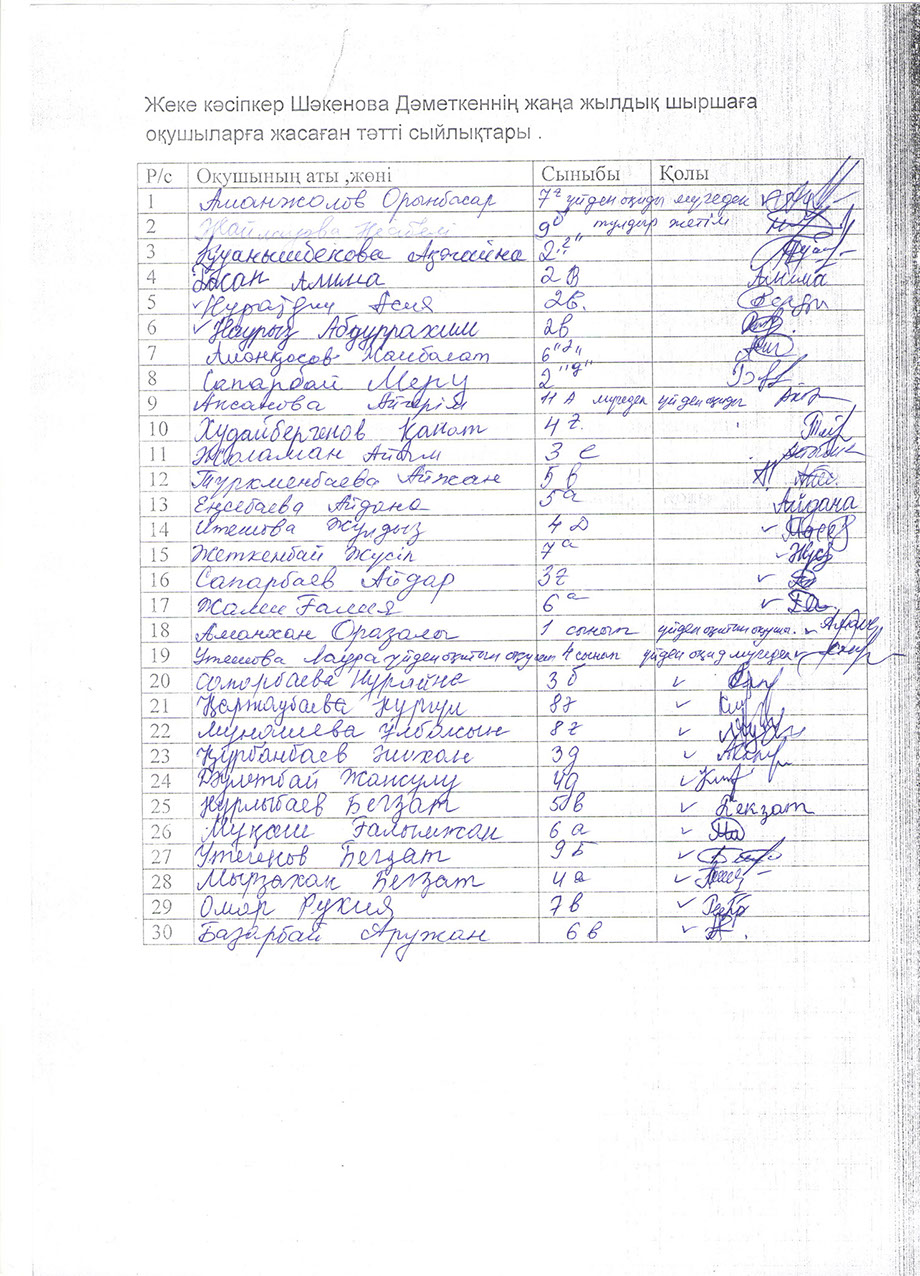 Жеке кәсіпкер Шәкенова Дәметкеннің жаңа жылдық шыршаға
оқушыларға жасаған тәтті сыйлықтары .
Р/с Оқушының аты ,жөні Сыныбы Қолы
1 Аманжолов Орынбасар 7 а үйден оқиды мүгедек
2 9 б тұлдыр жетім
3 Қуанышбекова Ақжайна 2 "г"
4 Хасан Алима 2 В Алима
5 Асия 2в.
6 Наурыз Абдуррахим 2в
7 6 "д"
8 Сапарбай Меру 2 "д"
9 Апсанова Айгерім 11 А мүгедек үйден оқиды
10 Худайбергенов Қанат 4 г.
11 Жоламан Айым 3 е
12 Туркменбаева Айжан 5 в
13 Еңсебаева Айдана 5 а Айдана
14 Итешова Жұлдыз 4 Д
15 Жеткенбай Жүсіп 7 а
16 Сапарбаев Айдар 3г
17 Жами Ғалия 6 а
18 Аманхан Оразалы 1 сынып үйден оқитын оқушы.
19 Утешова Лаура үйден оқитын оқушы 4 сынып үйден оқид мүгедек
20 Сапарбаева Нурайна 3 б
21 Қаржаубаева Нургул 8г
22 Ұлболсын 8г
23 Құрбанбаев 3д
24 Жансулу 4д
25 Нурлыбаев Бегзат 5в Бекзат
26 Мұқаш Ғалымжан 6 а
27 Утегенов Бегзат 9 Б
28 Мырзахан Бегзат 4 а
29 Омар Рукия 7 в
30 Базарбай Аружан 6 в